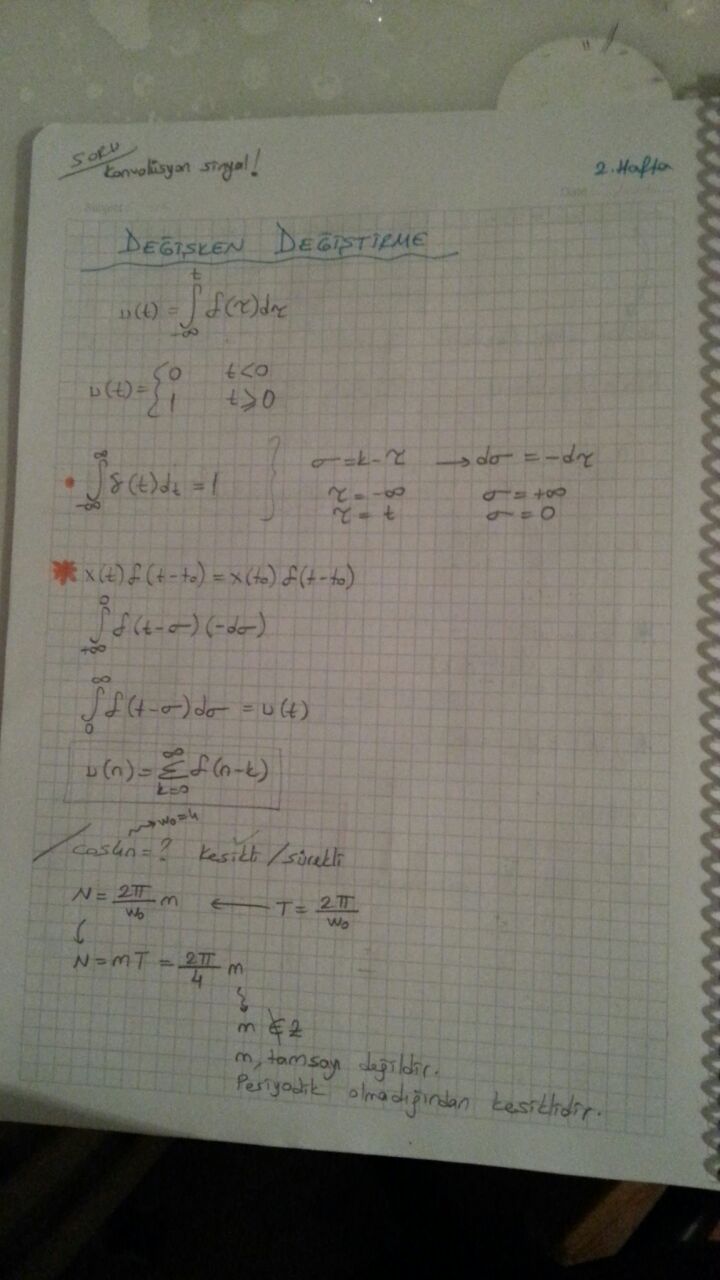 SORU
Konvolüsyon sinyal!
2. Hafta
DEĞİŞKEN DEĞİŞTİRME
u(t) = ∫_{-∞}^{t} δ(τ)dτ
u(t) = { 0 t<0
1 t⩾0
• ∫_{-∞}^{∞} δ(t)dt = 1 } σ = t-τ → dσ = -dτ
τ = -∞ σ = +∞
τ = t σ = 0
* x(t) δ(t-t₀) = x(t₀) δ(t-t₀)
∫_{+∞}^{0} δ(t-σ) (-dσ)
∫_{0}^{∞} δ(t-σ)dσ = u(t)
u(n) = Σ_{k=0}^{∞} δ(n-k)
→ w₀=4
cos4n = ? kesikli ✓ / sürekli
N = 2π/w₀ m ← T = 2π/w₀
N = mT = 2π/4 m
m ∉ Z
m, tamsayı değildir.
Periyodik olmadığından kesiklidir.